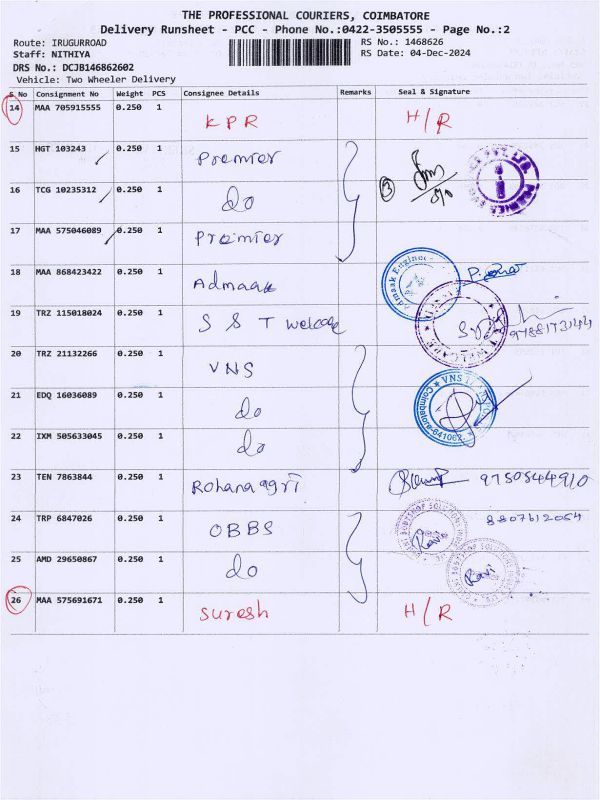 THE PROFESSIONAL COURIERS, COIMBATORE
Delivery Runsheet - PCC - Phone No.:0422-3505555 - Page No.:2
Route: IRUGURROAD RS No.: 1468626
Staff: NITHIYA RS Date: 04-Dec-2024
DRS No.: DCJB146862602
Vehicle: Two Wheeler Delivery
S No Consignment No Weight PCS Consignee Details Remarks Seal & Signature
14 MAA 705915555 0.250 1 KPR H/R
15 HGT 103243 0.250 1 Premier
16 TCG 10235312 0.250 1 do 3
17 MAA 575046089 0.250 1 Premier
18 MAA 868423422 0.250 1 Admaak
19 TRZ 115018024 0.250 1 S S T welcome 9788173144
20 TRZ 21132266 0.250 1 VNS
21 EDQ 16036089 0.250 1 do
22 IXM 505633045 0.250 1 do
23 TEN 7863844 0.250 1 Rohana agri 9750544910
24 TRP 6847026 0.250 1 OBBS Ravi 8807612054
25 AMD 29650867 0.250 1 do Ravi
26 MAA 575691671 0.250 1 Suresh H/R